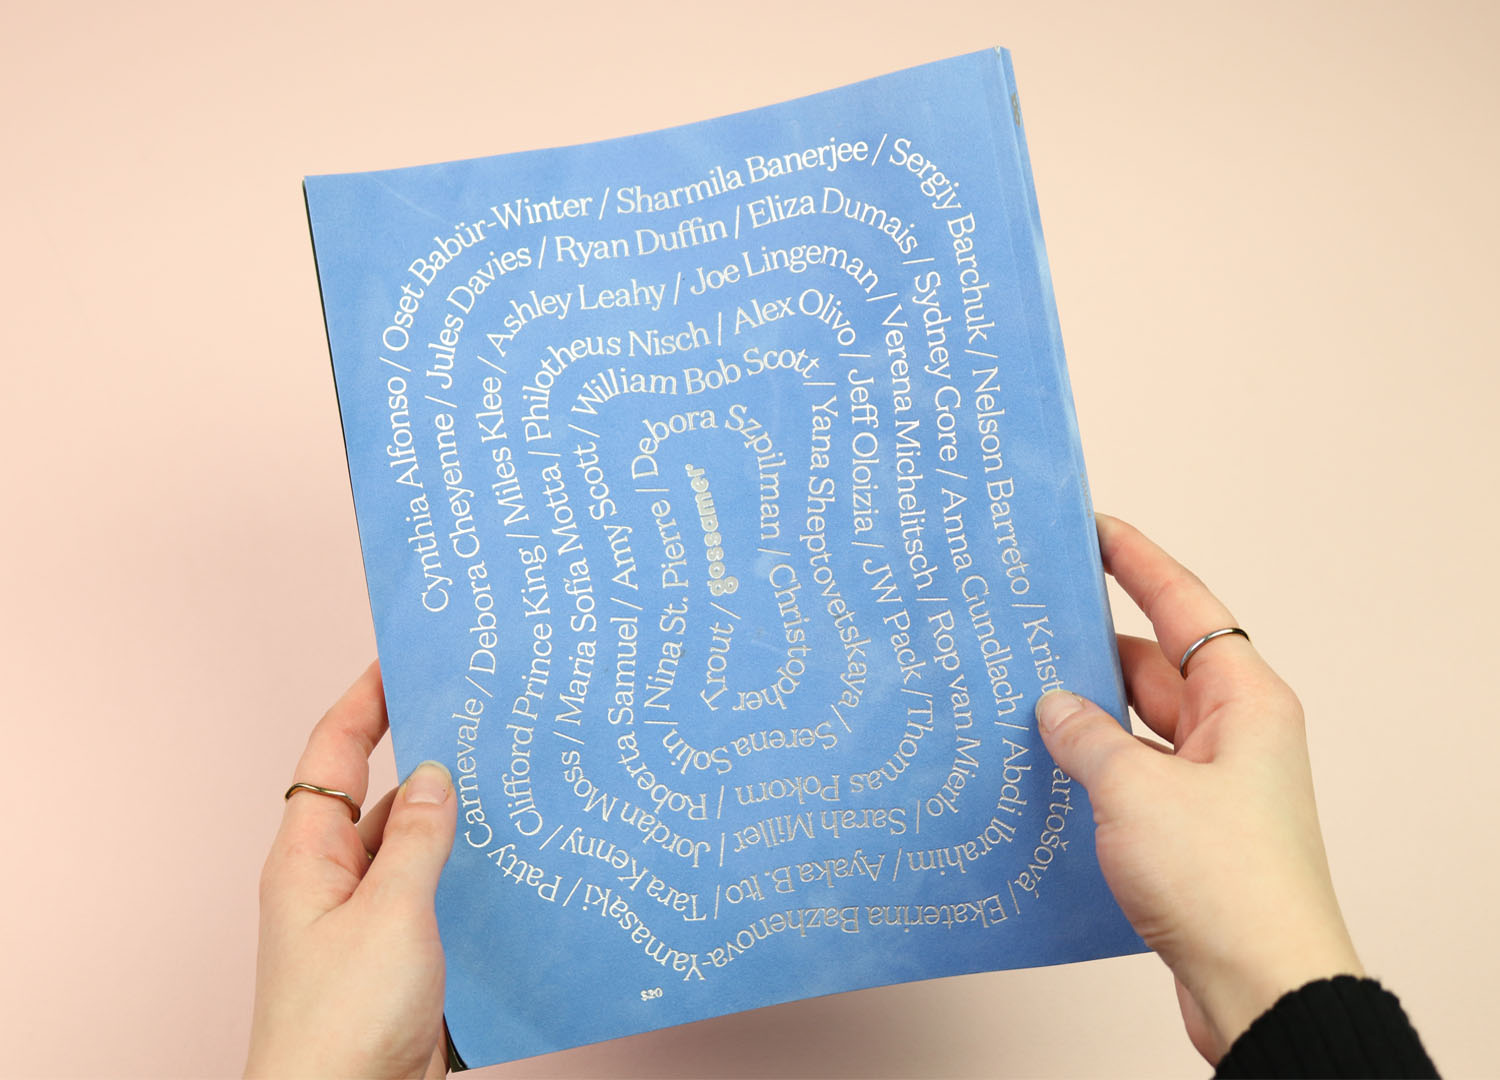 Cynthia Alfonso / Oset Babür-Winter / Sharmila Banerjee / Sergiy Barchuk / Nelson Barreto / / Ekaterina Bazhenova-Yamasaki / Patty Carnevale / Debora Cheyenne / Jules Davies / Ryan Duffin / Eliza Dumais / Sydney Gore / Anna Gundlach / Abdi Ibrahim / Ayaka B. Ito / Tara Kenny / Clifford Prince King / Miles Klee / Ashley Leahy / Joe Lingeman / Verena Michelitsch / Rop van Mierlo / Sarah Miller / Jordan Moss / Maria Sofía Motta / Philotheus Nisch / Alex Olivo / Jeff Oloizia / JW Pack / Thomas Pokorn / Roberta Samuel / Amy Scott / William Bob Scott / Yana Sheptovetskaya / Serena Solin / Nina St. Pierre / Debora Szpilman / Christopher Yrout / gossamer
$20